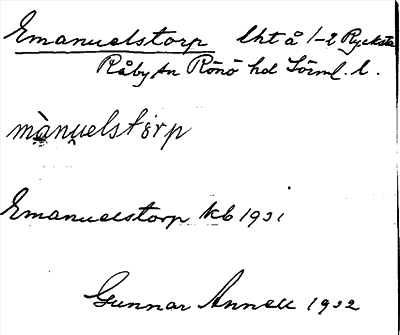 Emanuelstorp lht å 1-2 Rycksta
Råby sn Rönö hd Sörml. l.
mànuelstórp
Emanuelstorp kb 1931
Gunnar Annell 1932